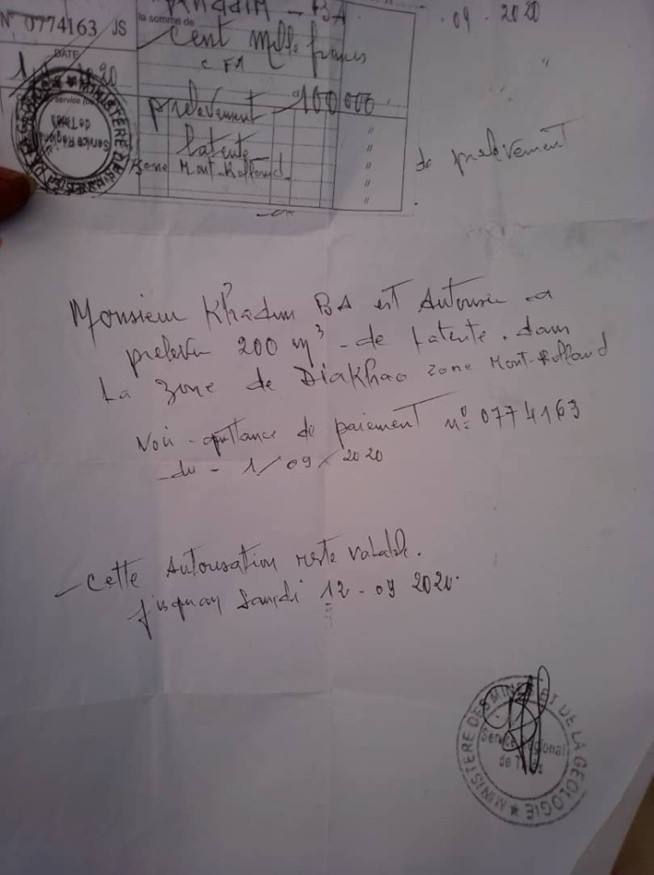 Khadim - BA
09 . 2020
N° 0774163 JS
la somme de
Cent Mille francs
CFA
DATE
prelevement 100 000
Latente
Zone Mont-Rolland
MINISTERE DES MINES ET DE LA GEOLOGIE
Service Régional
de Thiès
de prelevement
Monsieur Khadim BA est Autorisé a
prelever 200 m³ - de Latente. dans
La zone de Diakhao zone Mont-Rolland
Voir - quittance de paiement n° 0774163
- du - 1/09/2020
- Cette Autorisation reste valable.
jusquau Samedi 12 - 09 2020.
MINISTERE DES MINES ET DE LA GEOLOGIE
Service Régional
de Thiès